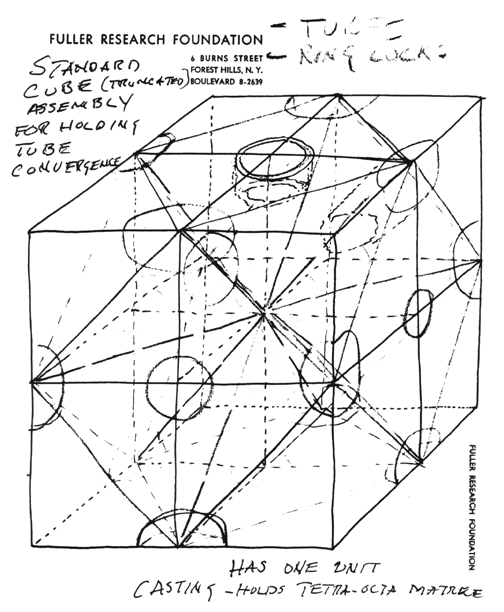 FULLER RESEARCH FOUNDATION
6 BURNS STREET
FOREST HILLS, N. Y.
BOULEVARD 8-2639
- TUBE
- RING LOCKS
STANDARD
CUBE (TRUNCATED)
ASSEMBLY
FOR HOLDING
TUBE
CONVERGENCE
FULLER RESEARCH FOUNDATION
HAS ONE UNIT
CASTING - HOLDS TETRA-OCTA